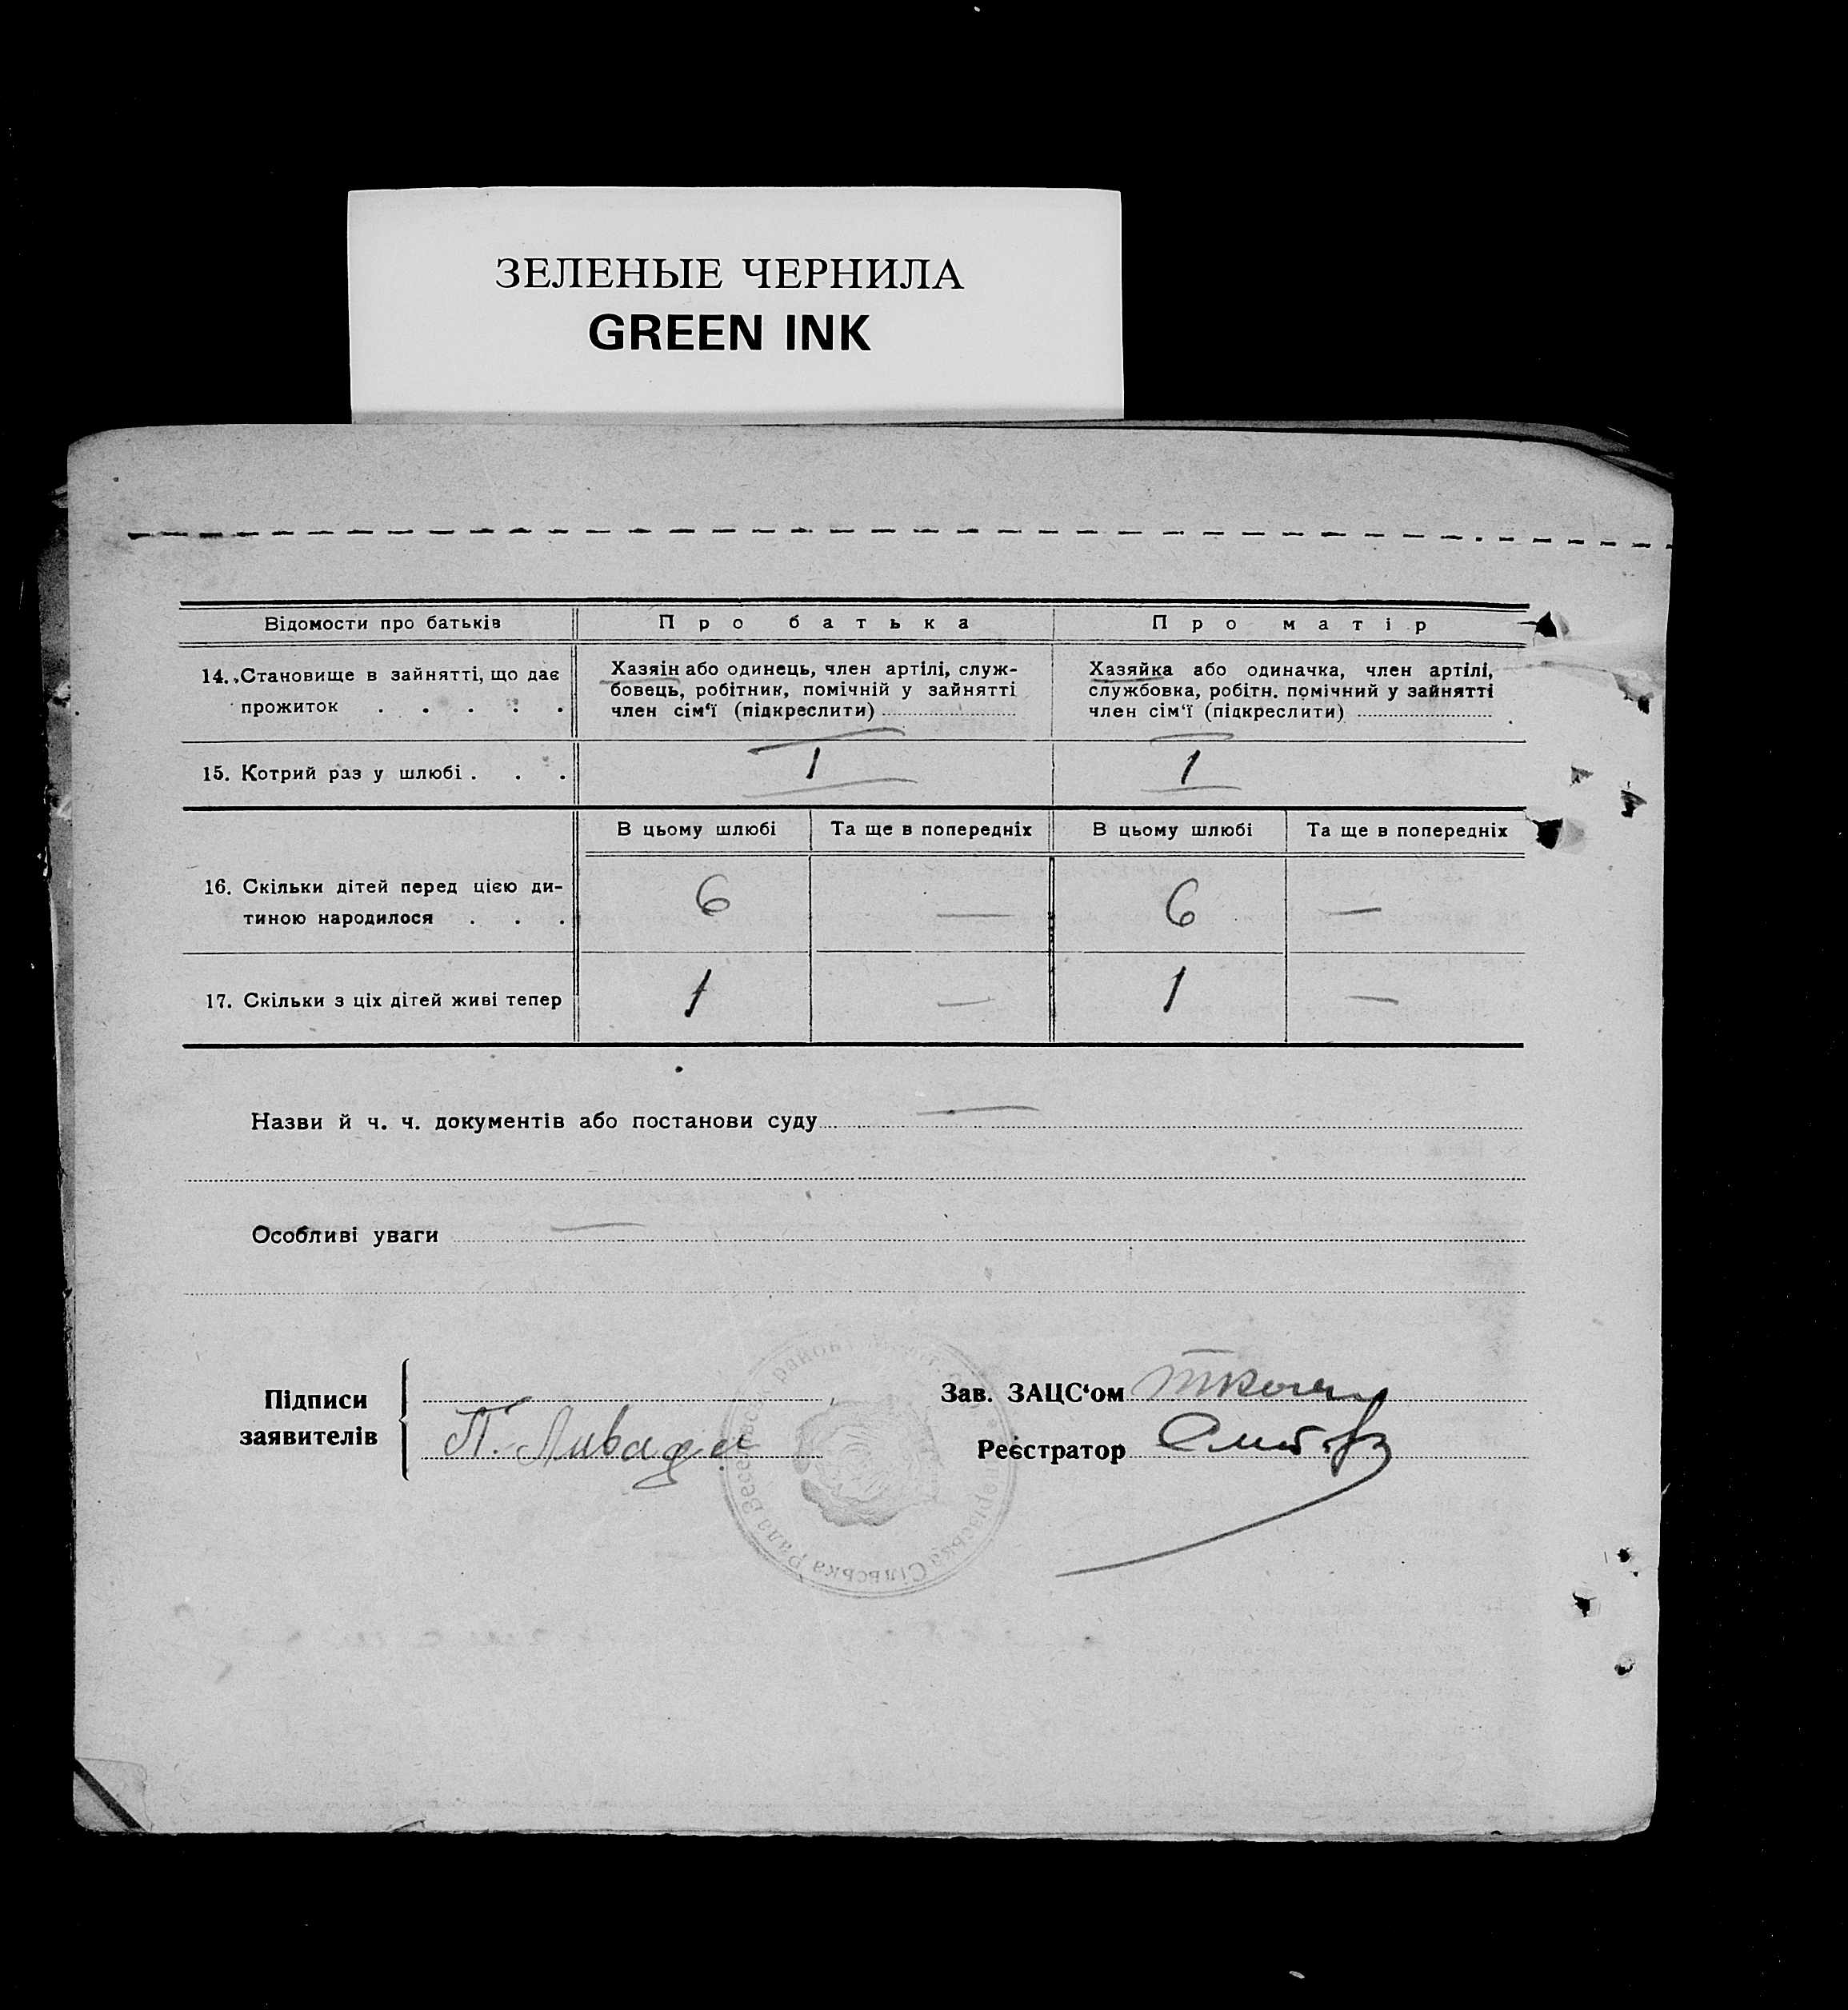 ЗЕЛЕНЫЕ ЧЕРНИЛА
GREEN INK
Відомости про батьків Про батька Про матір
14. Становище в зайнятті, що дає прожиток . . . . .
Хазяін або одинець, член артілі, служ-
бовець, робітник, помічній у зайнятті
член сім‘ї (підкреслити)
Хазяйка або одиначка, член артілі,
службовка, робітн. помічний у зайнятті
член сім‘ї (підкреслити)
15. Котрий раз у шлюбі . . . 1 1
В цьому шлюбі Та ще в попередніх В цьому шлюбі Та ще в попередніх
16. Скільки дітей перед цією ди-
тиною народилося . . . 6 — 6 —
17. Скільки з ціх дітей живі тепер 1 — 1 —
Назви й ч. ч. документів або постанови суду —
Особливі уваги —
Підписи
заявителів
П. Ливада
Зав. ЗАЦС‘ом
Реєстратор
Сільська Рада